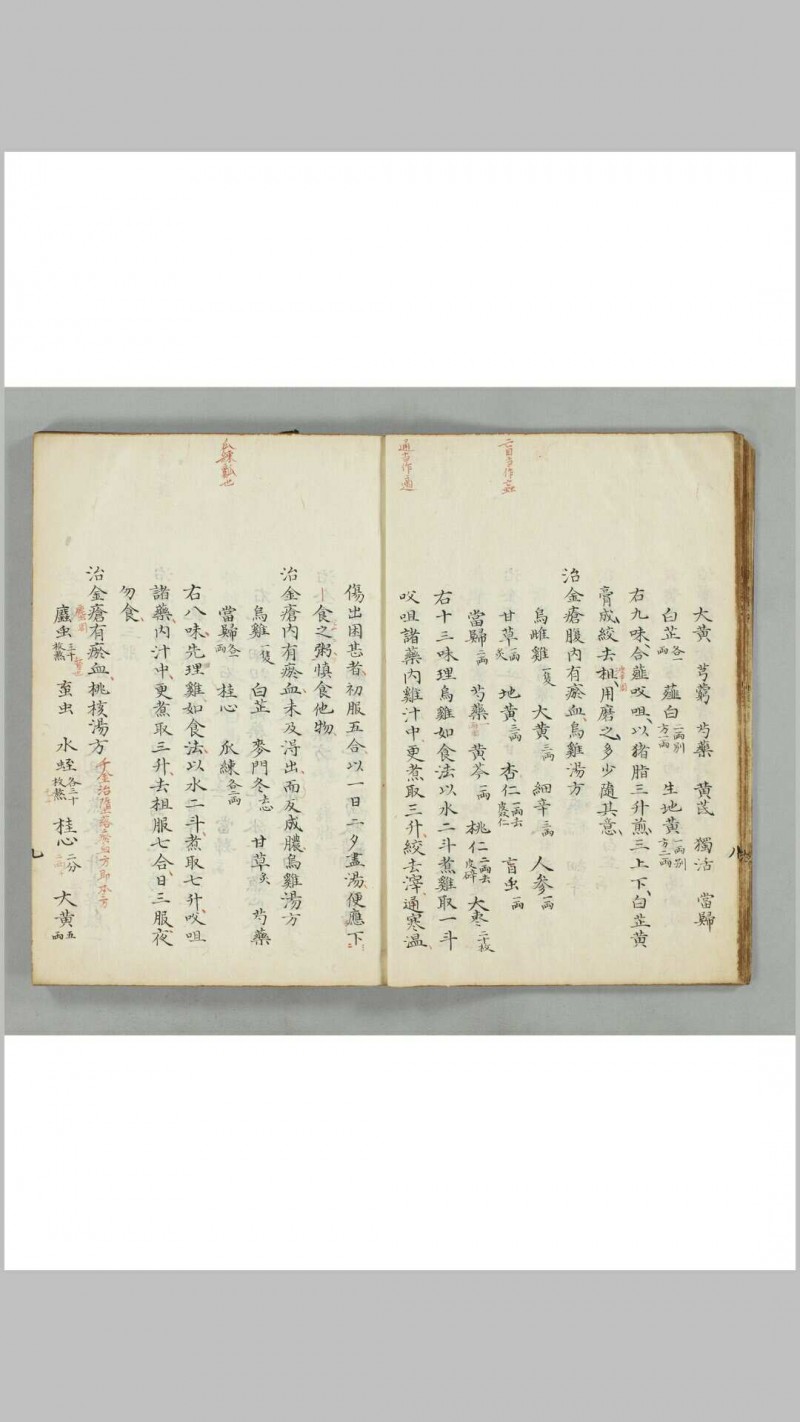 大黄 芎藭 芍藥 黄芪 獨活 當歸
白芷各一兩 薤白一兩別方一兩 生地黄一兩別方二兩
右九味、合薤㕮咀、以猪脂三升煎、三上下、白芷黄
膏成、絞去柤、用磨之、多少随其意、
治金瘡腹内有瘀血、烏雞湯方
烏雌雞一隻 大黄三兩 細辛三兩 人参一兩
甘草一兩炙 地黄三兩 杏仁一兩去皮仁 盲虫一兩
當歸二兩 芍藥一兩 黄芩一兩 桃仁二兩去皮碎 大枣二十枚
右十三味理烏雞如食法以水二斗煮雞取一斗
㕮咀諸藥内雞汁中、更煮取三升、絞去滓、通寒温、
盲当作蝱
通当作適
傷出困甚者、初服五合、以一日二夕盡湯、便應下
食之粥、慎食他物
治金瘡内有瘀血、未及淂出、而反成膿烏雞湯方
烏雞一隻 白芷 麥門冬去心 甘草炙 芍藥
當歸各一兩 桂心 瓜練各二兩
右八味、先理雞、如食法、以水二斗、煮取七升、㕮咀
諸藥、内汁中、更煮取三升、去柤服七合、日三服夜
勿食、
治金瘡有瘀血、桃核湯方
䗪虫三十枚熬 蝱虫 水蛭各三十枚熬 桂心二分 大黄五兩
瓜練瓤也
七
八